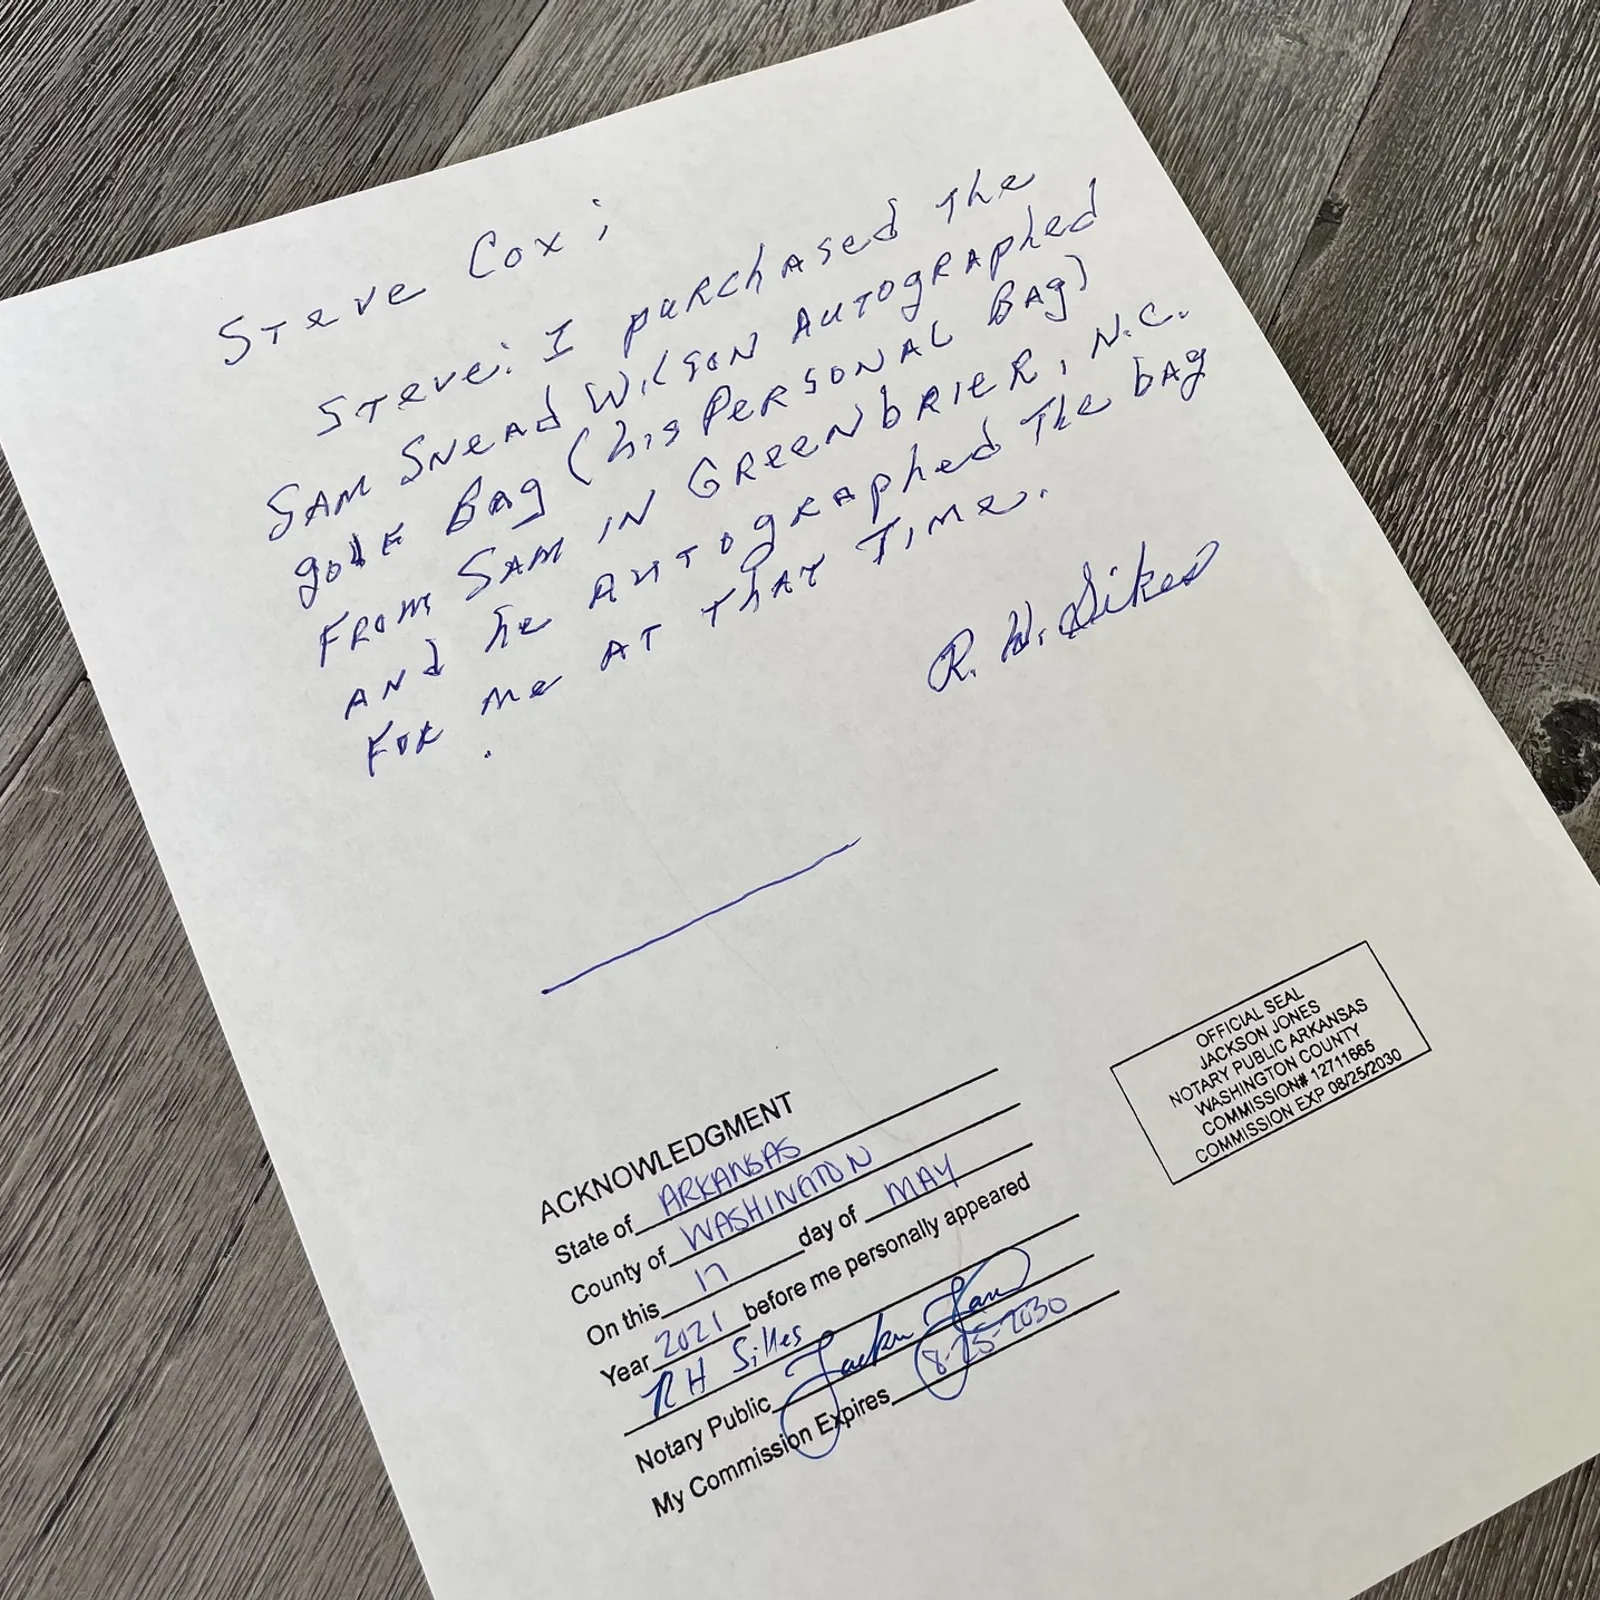 Steve Cox;
Steve: I purchased the
Sam Snead Wilson Autographed
golf Bag (his Personal Bag)
From Sam in Greenbrier, N.C.
and he autographed the bag
for me at that time.
R. H. Sikes
OFFICIAL SEAL
JACKSON JONES
NOTARY PUBLIC ARKANSAS
WASHINGTON COUNTY
COMMISSION# 12711665
COMMISSION EXP 08/25/2030
ACKNOWLEDGMENT
State of ARKANSAS
County of WASHINGTON
On this 17 day of MAY
Year 2021 before me personally appeared
RH Sikes
Notary Public Jackson Jones
My Commission Expires 8-25-2030